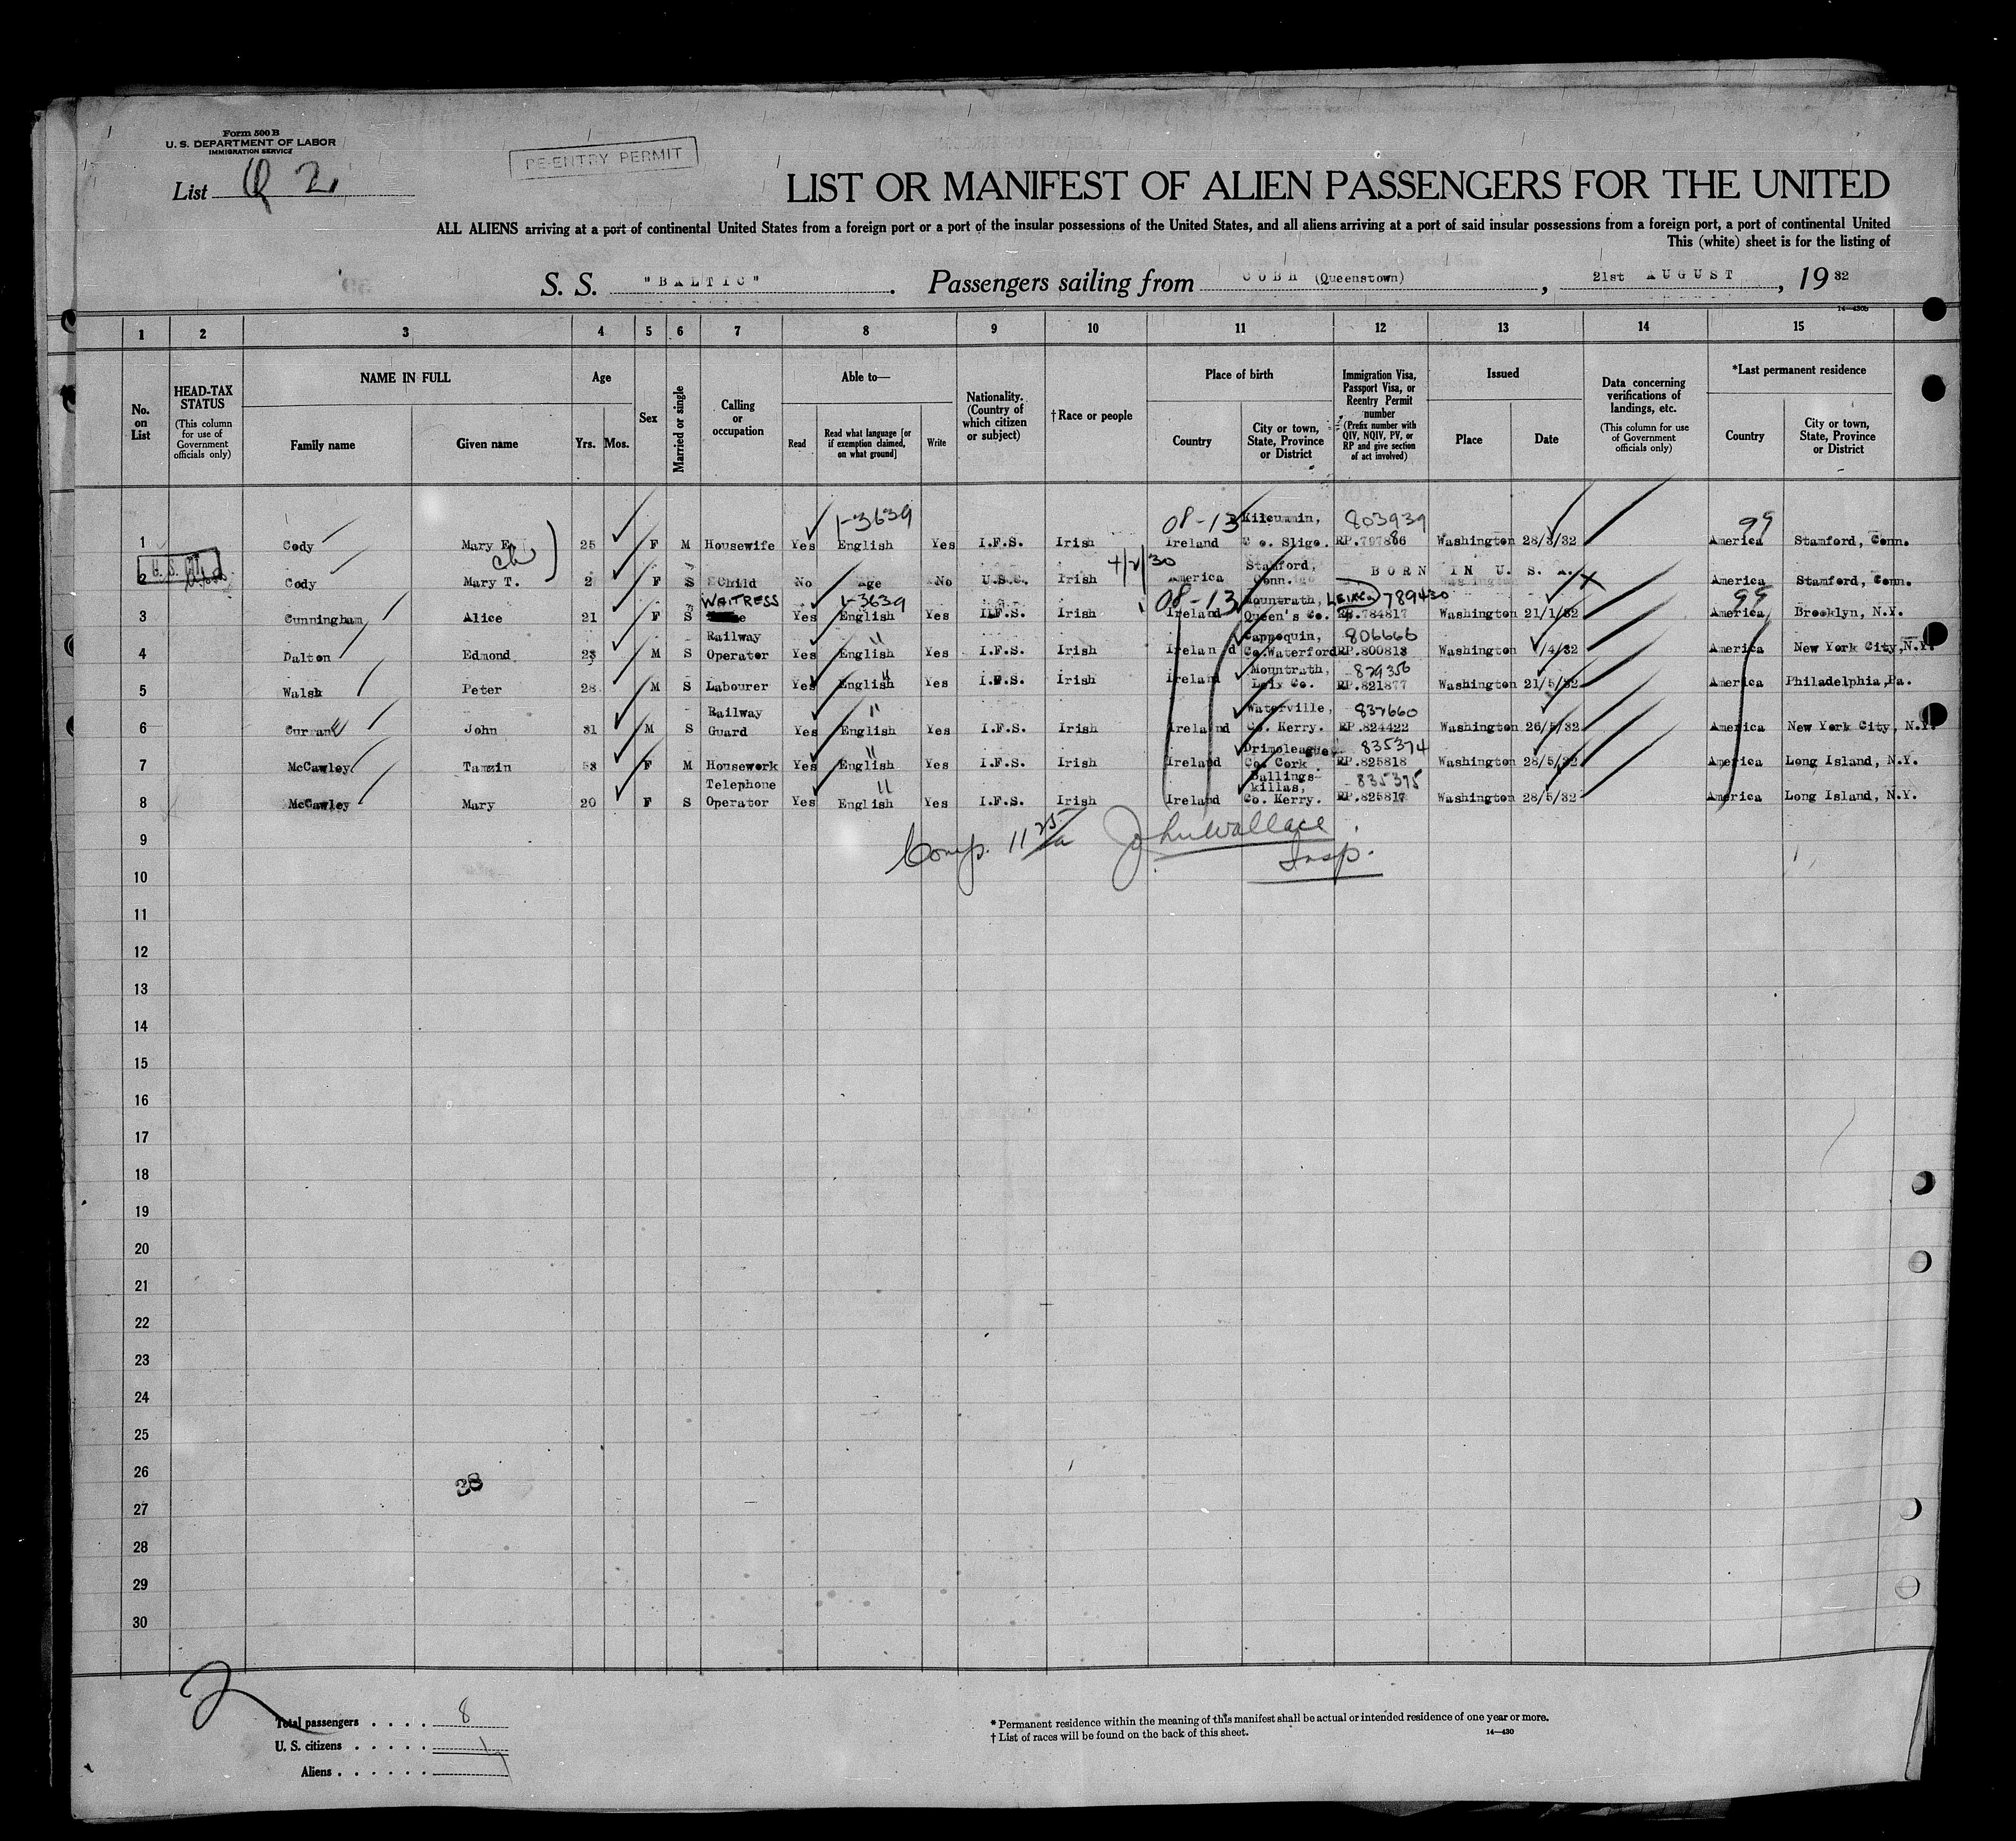 Form 500 B
U. S. DEPARTMENT OF LABOR
IMMIGRATION SERVICE
RE-ENTRY PERMIT
List Q 2
LIST OR MANIFEST OF ALIEN PASSENGERS FOR THE UNITED
ALL ALIENS arriving at a port of continental United States from a foreign port or a port of the insular possessions of the United States, and all aliens arriving at a port of said insular possessions from a foreign port, a port of continental United
This (white) sheet is for the listing of
S. S. "BALTIC". Passengers sailing from COBH (Queenstown), 21st AUGUST, 19 32
14—430b
1 2 3 4 5 6 7 8 9 10 11 12 13 14 15
No. on List
HEAD-TAX STATUS (This column for use of Government officials only)
NAME IN FULL Family name Given name
Age Yrs. Mos.
Sex
Married or single
Calling or occupation
Able to— Read Read what language [or if exemption claimed, on what ground] Write
Nationality. (Country of which citizen or subject)
†Race or people
Place of birth Country City or town, State, Province or District
Immigration Visa, Passport Visa, or Reentry Permit number (Prefix number with QIV, NQIV, PV, or RP and give section of act involved)
Issued Place Date
Data concerning verifications of landings, etc. (This column for use of Government officials only)
*Last permanent residence Country City or town, State, Province or District
1-3639 08-13 Kilcummin, 803939 99
1 Cody Mary E. 25 F M Housewife Yes English Yes I.F.S. Irish Ireland Co. Sligo. RP.797866 Washington 28/3/32 America Stamford, Conn.
Ch
4/2/30 Stamford, BORN IN U. S. A.
2 Cody Mary T. 2 F S Child No Age No U.S.C. Irish America Conn. America Stamford, Conn.
WAITRESS 1-3639 08-13 Mountrath, 789430 99
3 Cunningham Alice 21 F S Yes English Yes I.F.S. Irish Ireland Queen's Co. RP.784817 Washington 21/1/32 America Brooklyn, N.Y.
Railway " Cappoquin, 806666
4 Dalton Edmond 23 M S Operator Yes English Yes I.F.S. Irish Ireland Co.Waterford RP.800818 Washington /4/32 America New York City, N.Y.
Mountrath, 829356
5 Walsh Peter 28 M S Labourer Yes English " Yes I.F.S. Irish Ireland Leix Co. RP.821877 Washington 21/5/32 America Philadelphia, Pa.
Railway " Waterville, 832660
6 Curran John 31 M S Guard Yes English Yes I.F.S. Irish Ireland Co. Kerry. RP.824422 Washington 26/5/32 America New York City, N.Y.
" Drimoleague, 835374
7 McCawley Tamzin 53 F M Housework Yes English Yes I.F.S. Irish Ireland Co. Cork RP.825818 Washington 28/5/32 America Long Island, N.Y.
Telephone " Ballingskillas, 835375
8 McCawley Mary 20 F S Operator Yes English Yes I.F.S. Irish Ireland Co. Kerry. RP.825817 Washington 28/5/32 America Long Island, N.Y.
9 Comp. 11 25/a John Wallace
Insp.
10
11
12
13
14
15
16
17
18
19
20
21
22
23
24
25
26
28
27
28
29
30
2
Total passengers . . . . 8
U. S. citizens . . . . . 1
Aliens . . . . . . 7
* Permanent residence within the meaning of this manifest shall be actual or intended residence of one year or more.
† List of races will be found on the back of this sheet.
14—430